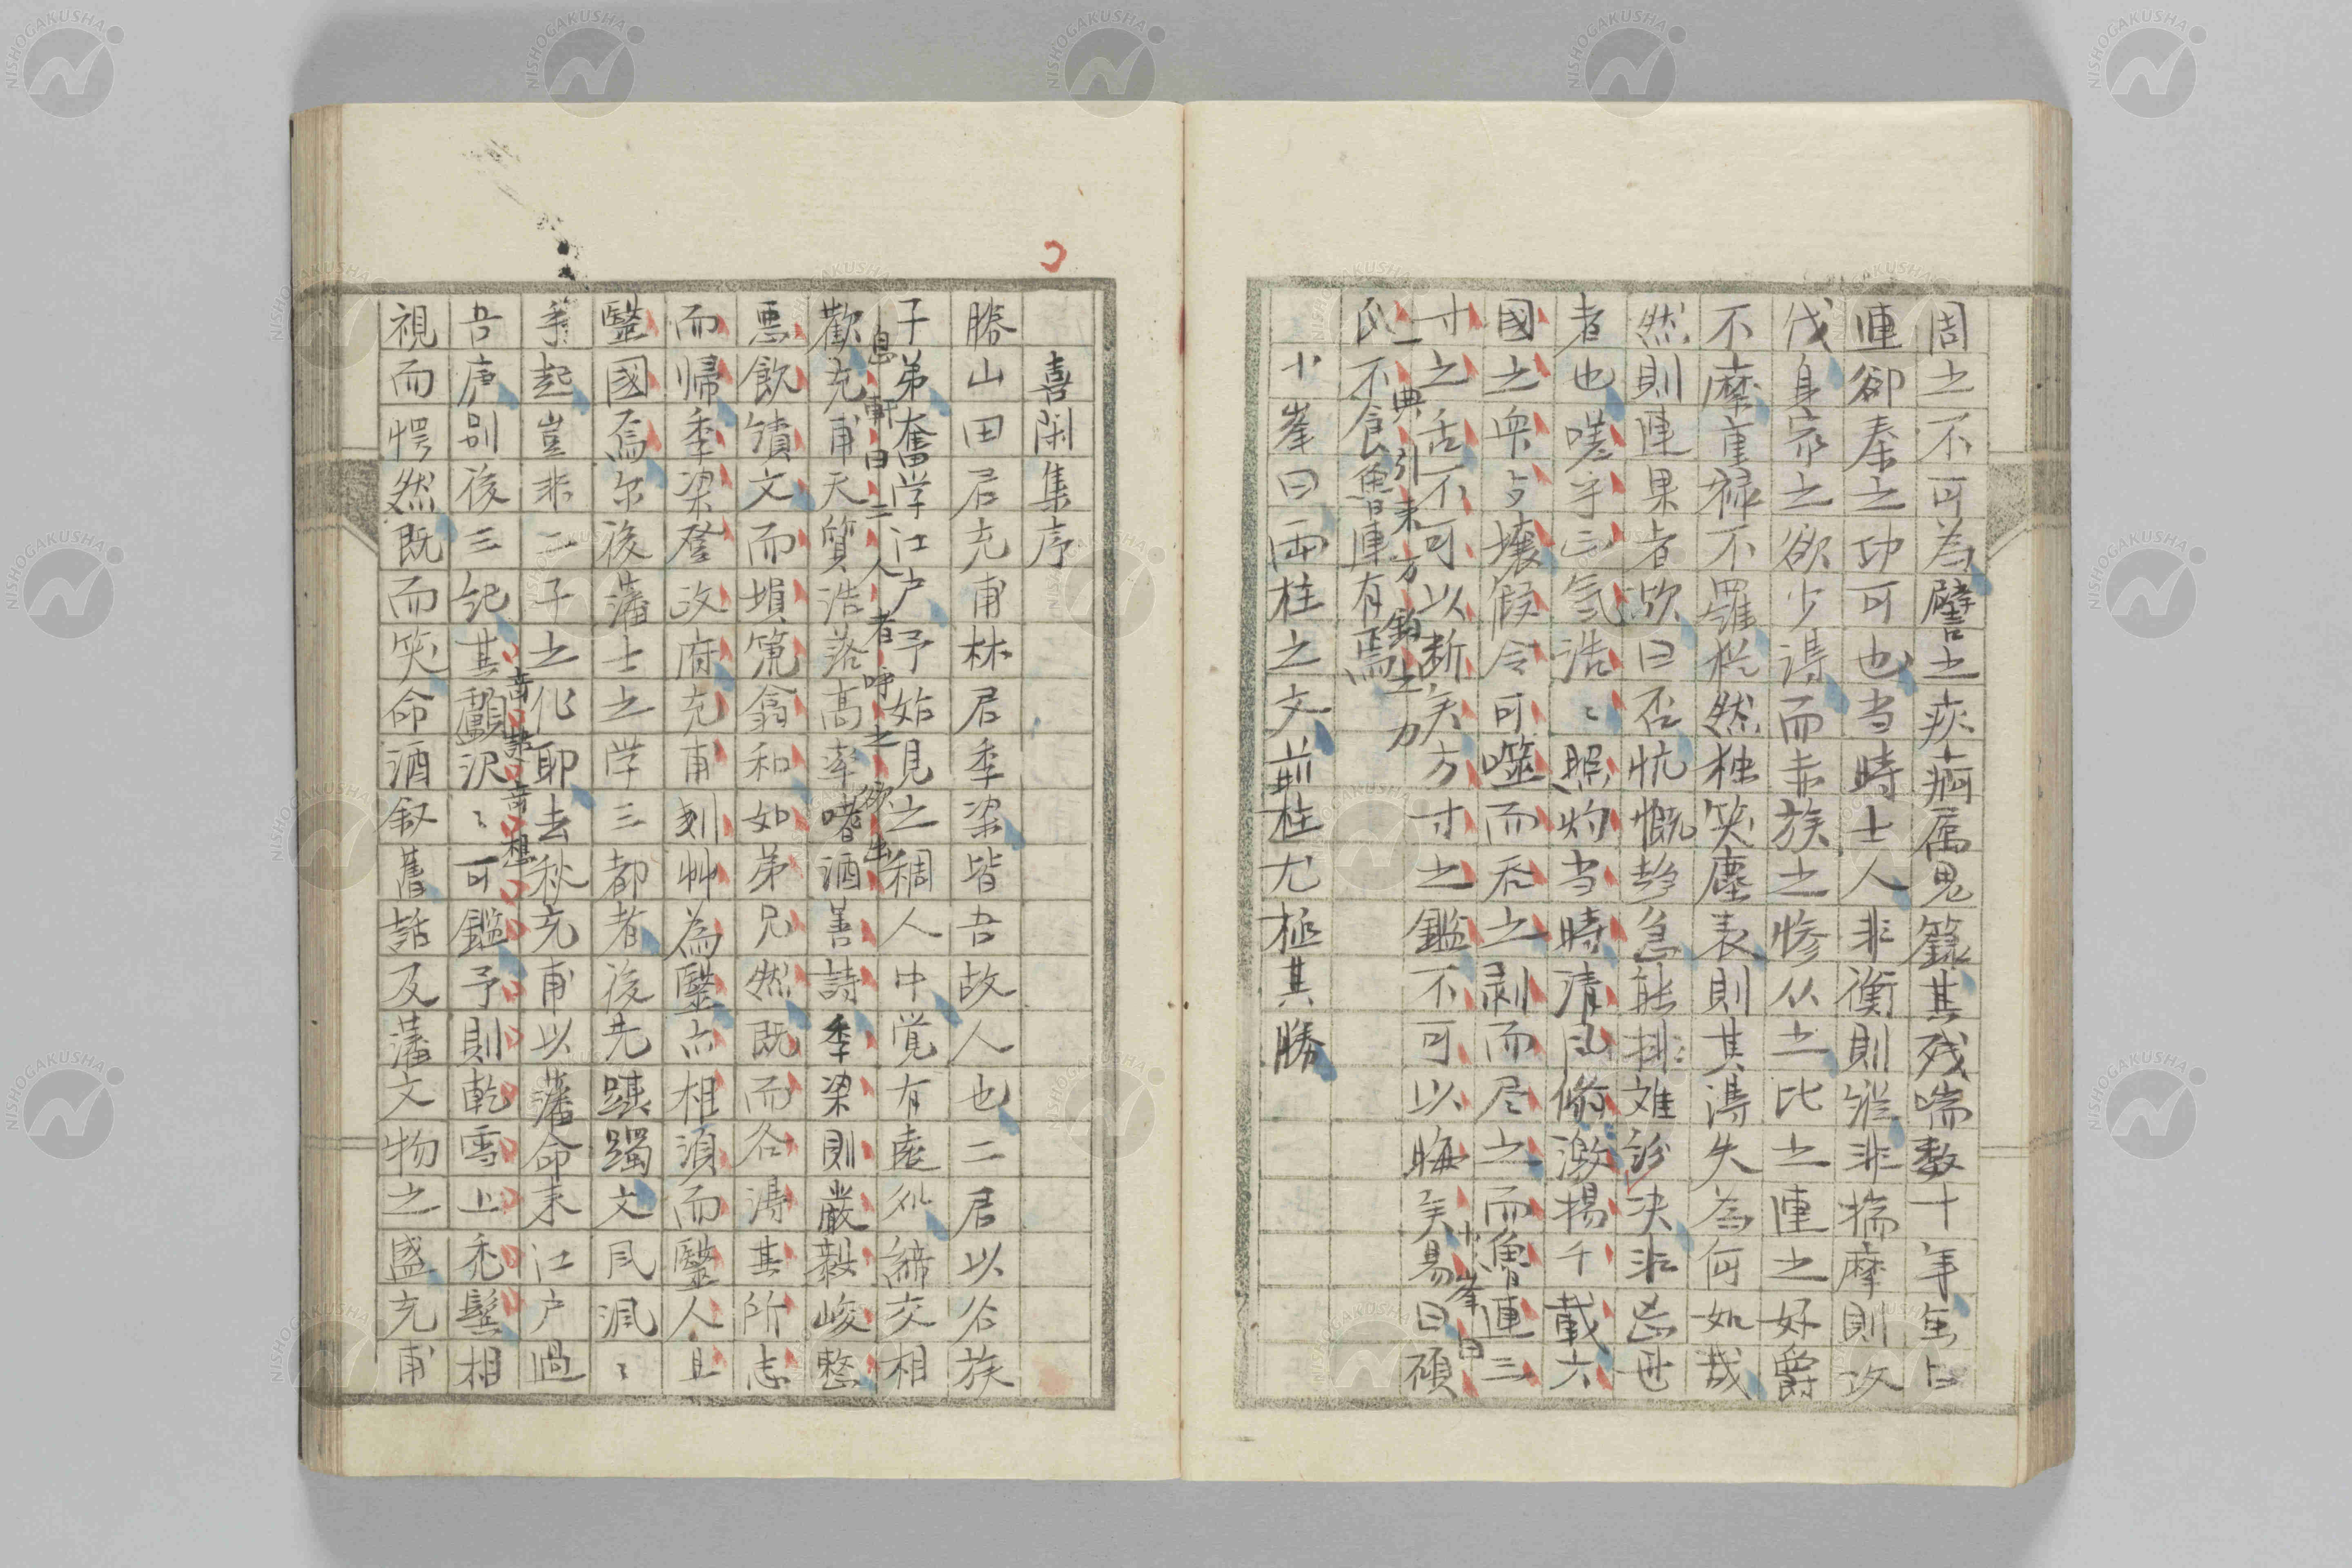 周之不可為譬之疾病属鬼籙其残喘数十年至上
連卻秦之功可也当時士人非衡則縦非揣摩則攻
伐身家之欲少得而赤族之惨从之比之連之好爵
不縻重禄不羅犹然独笑塵表則其得失為何如哉
然則連果者欤曰否忼慨趍急能排難訟決非忘世
者也嗟乎正氣浩〻照灼当時清風
激揚千載六
國之興与壤假令可噬而呑之剥而尽之而魯連三
寸之舌不可以断矣方寸之鑑不可以晦矣易曰碩
小峯曰
一典引来方
之力
不食魯連有焉
小峯曰両柱之文前柱尤極其勝
喜閑集序
勝山田君充甫林君季梁皆吾故人也二君以公族
子弟奮学江户予始見之稠人中覚有処从締交相
息軒曰三人者呼之欲出
歡充甫天質浩落高率嗜酒善詩季梁則厳毅峻整
悪飲績文而塤篪翕和如弟兄然既而各得其所志
而帰季梁登政府充甫刻艸為毉亦相須而毉人且
毉國焉尔後藩士之学三都者後先踑躅文風渢〻
乎起豈非二子之化耶去秋充甫以藩命来江户過
奇語奇想
吾廬别後三紀其顱沢〻可鑑予則乾雪上禿鬓相
視而愕然既而笑命酒叙舊話及藩文物之盛充甫